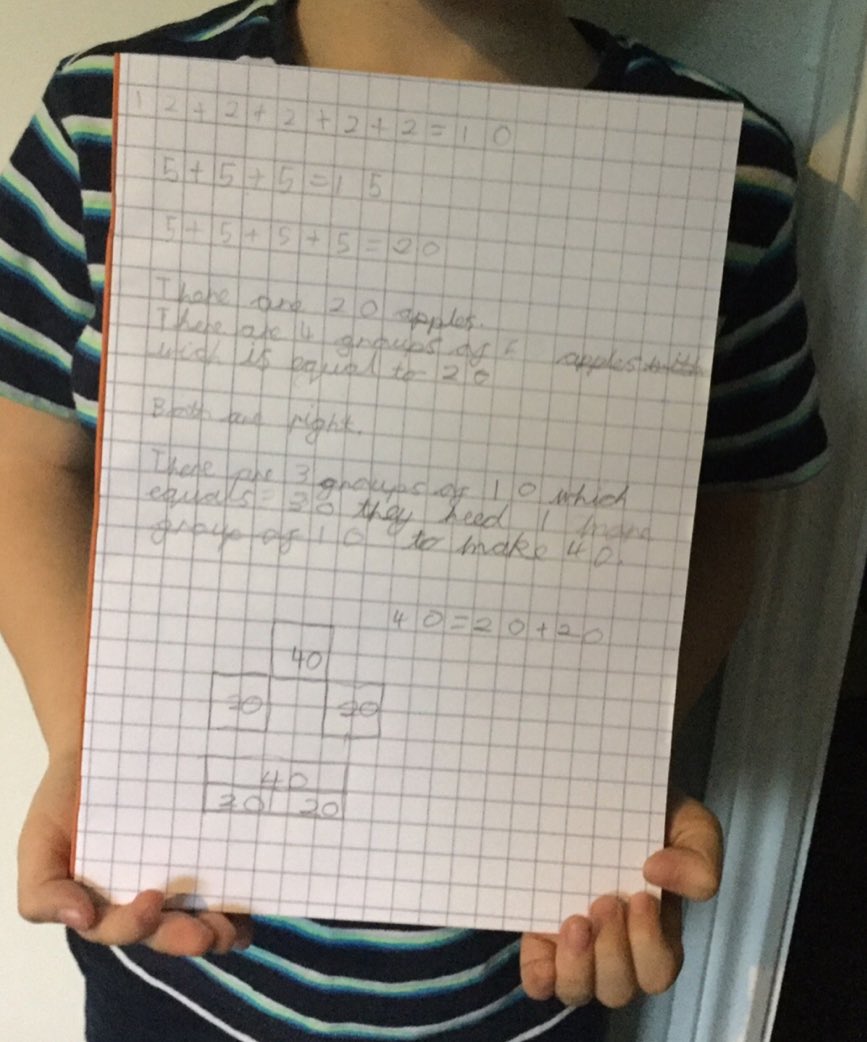 1 2 + 2 + 2 + 2 + 2 = 10
5 + 5 + 5 = 15
5 + 5 + 5 + 5 = 20
There are 20 apples.
There are 4 groups of apples
wich is equal to 20
Both are right.
There are 3 groups of 10 which
equals = 30 they need 1 more
group of 10 to make 40.
40 = 20 + 20
40
20 20
40
20 20